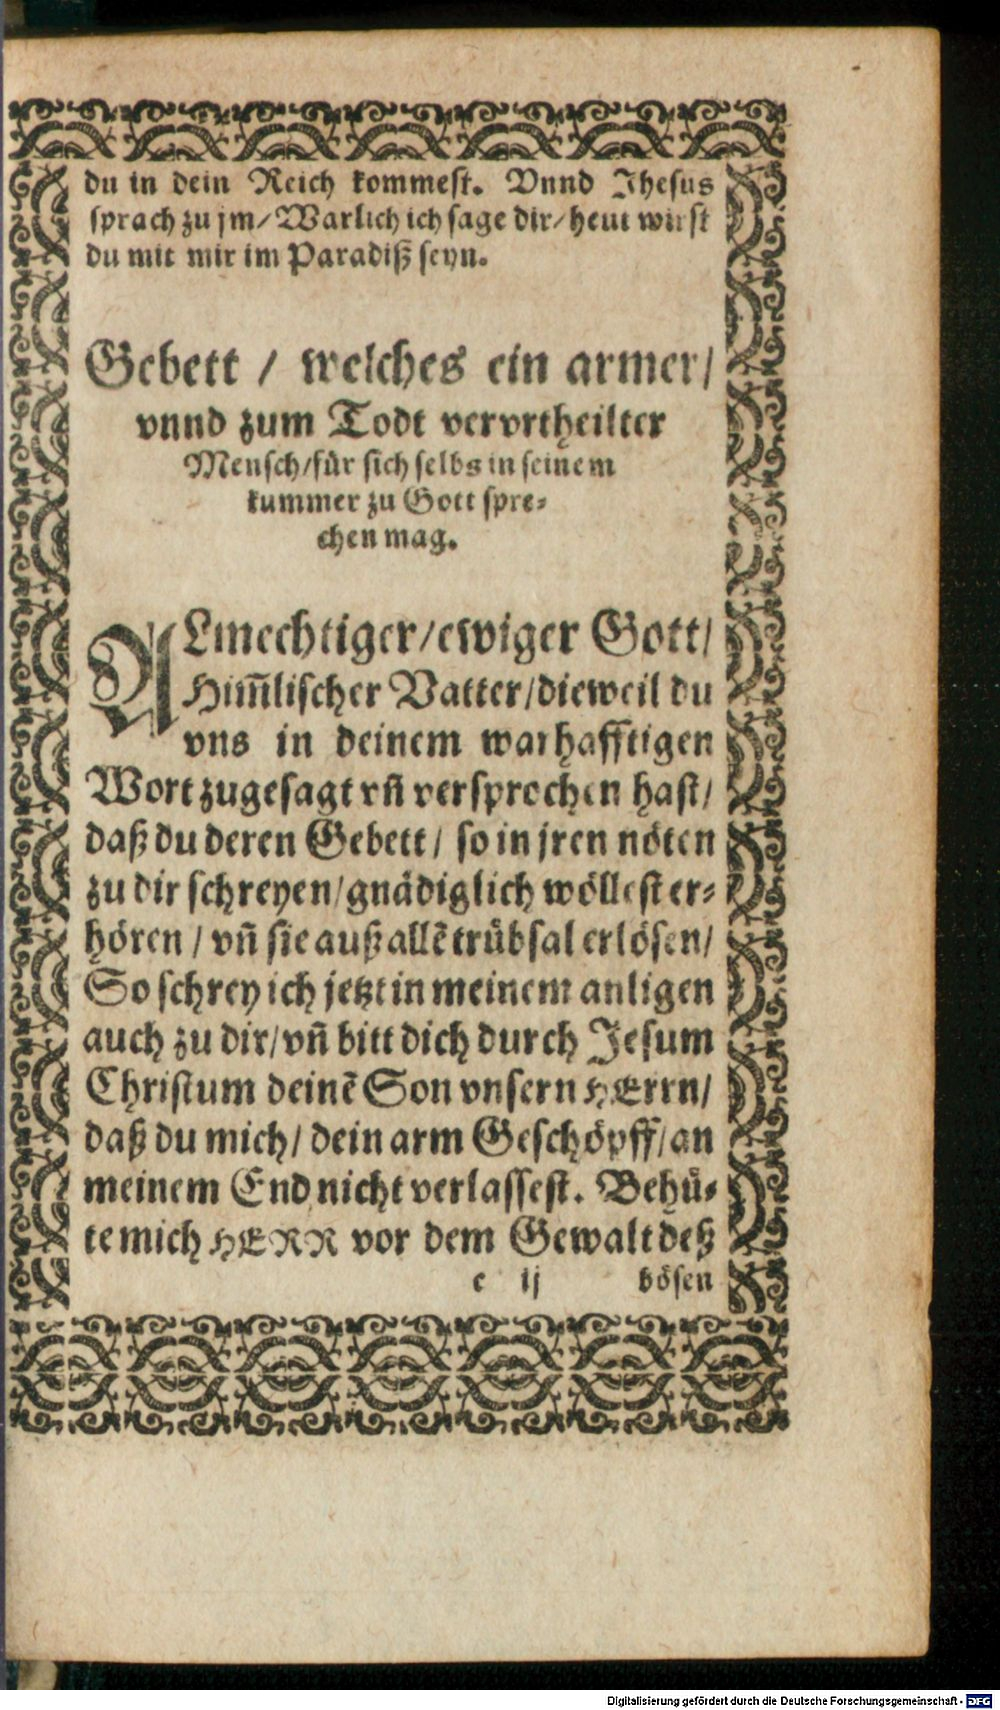 du in dein Reich kommest. Vnnd Jhesus
sprach zu jm/ Warlich ich sage dir/ heut wirst
du mit mir im Paradiß seyn.
Gebett / welches ein armer/
vnnd zum Todt vervrtheilter
Mensch/ für sich selbs in seinem
kummer zu Gott spre-
chen mag.
ALmechtiger/ ewiger Gott/
Him̃lischer Vatter/ dieweil du
vns in deinem warhafftigen
Wort zugesagt vñ versprochen hast/
daß du deren Gebett/ so in jren nöten
zu dir schreyen/ gnädiglich wöllest er-
hören / vñ sie auß allẽ trübsal erlösen/
So schrey ich jetzt in meinem anligen
auch zu dir/ vñ bitt dich durch Jesum
Christum deinẽ Son vnsern HErrn/
daß du mich/ dein arm Geschöpff/ an
meinem End nicht verlassest. Behü-
te mich HERR vor dem Gewalt deß
c ij bösen
Digitalisierung gefördert durch die Deutsche Forschungsgemeinschaft - DFG